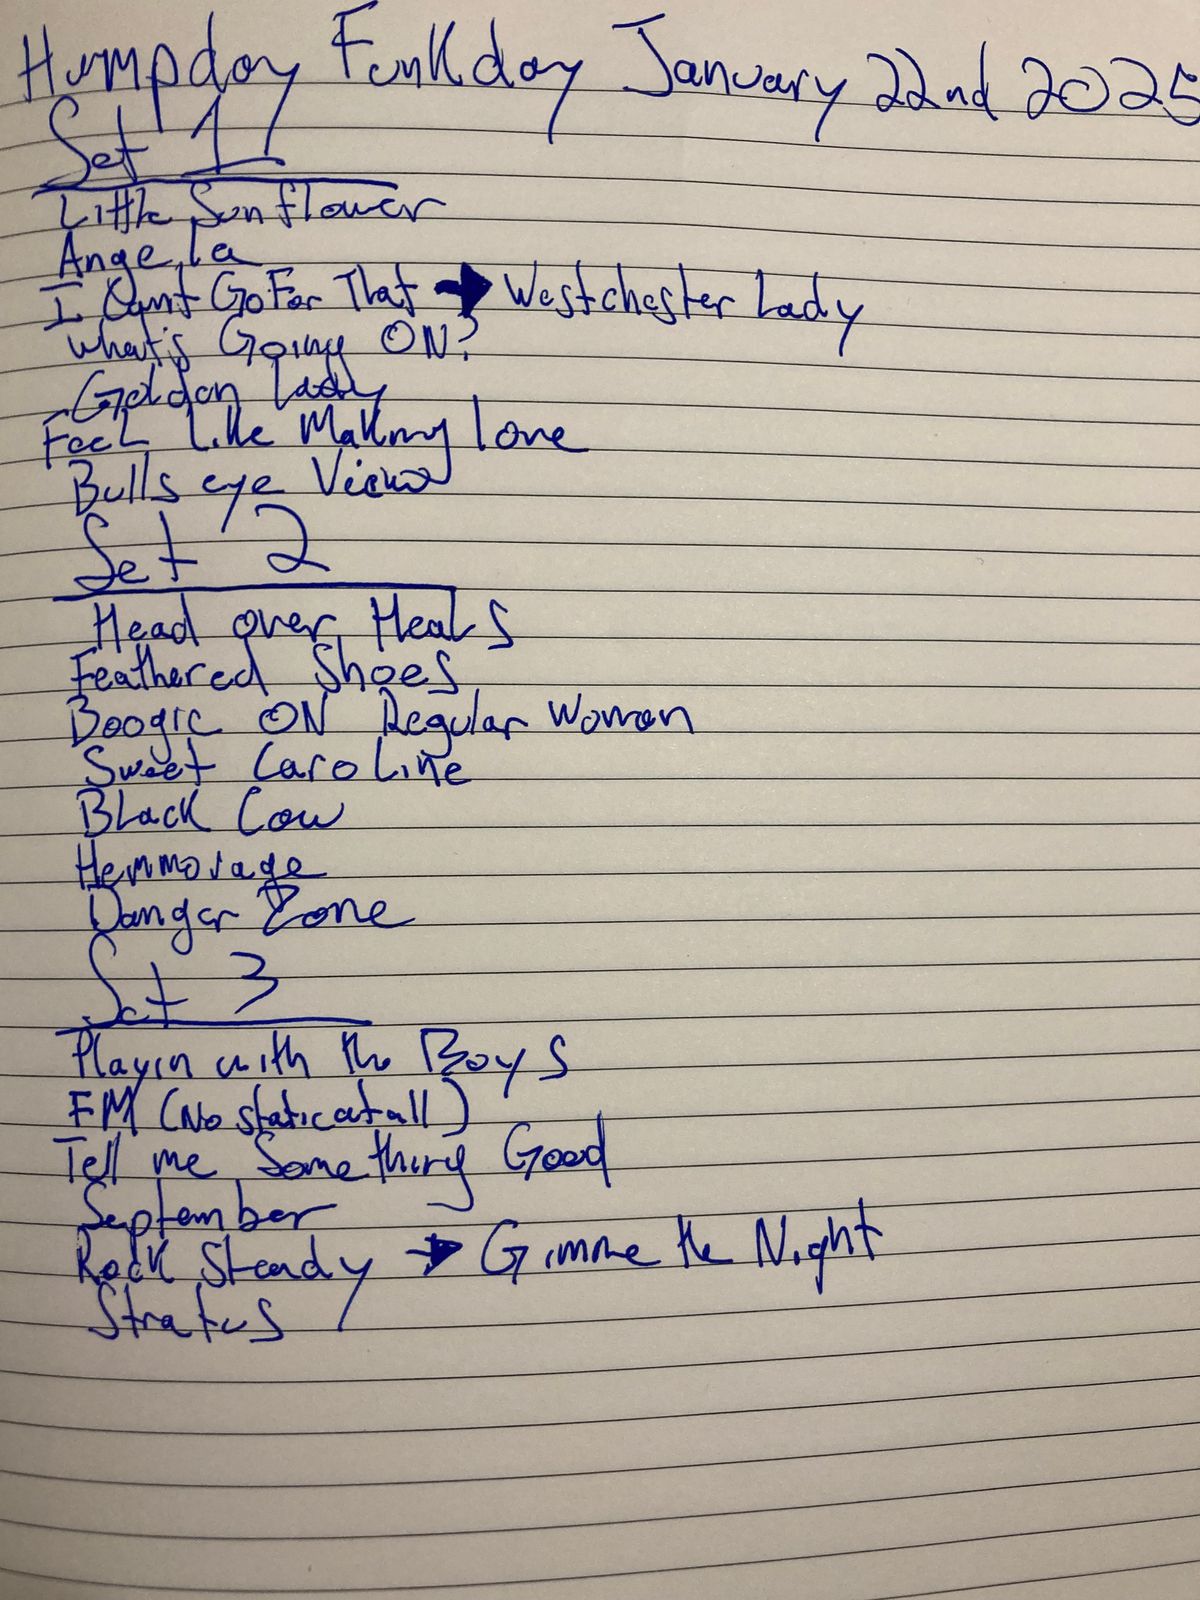 Humpday Funkday January 22nd 2025
Set 1
Little Sunflower
Angela
I Cant Go For That → Westchester Lady
What's Going ON?
Golden Lady
Feel Like Making Love
Bulls eye View
Set 2
Head over Heals
Feathered Shoes
Boogie ON Regular Woman
Sweet Caroline
Black Cow
Hemmorage
Danger Zone
Set 3
Playin with the Boys
FM (No static at all)
Tell me Something Good
September
Rock Steady → Gimme the Night
Stratus